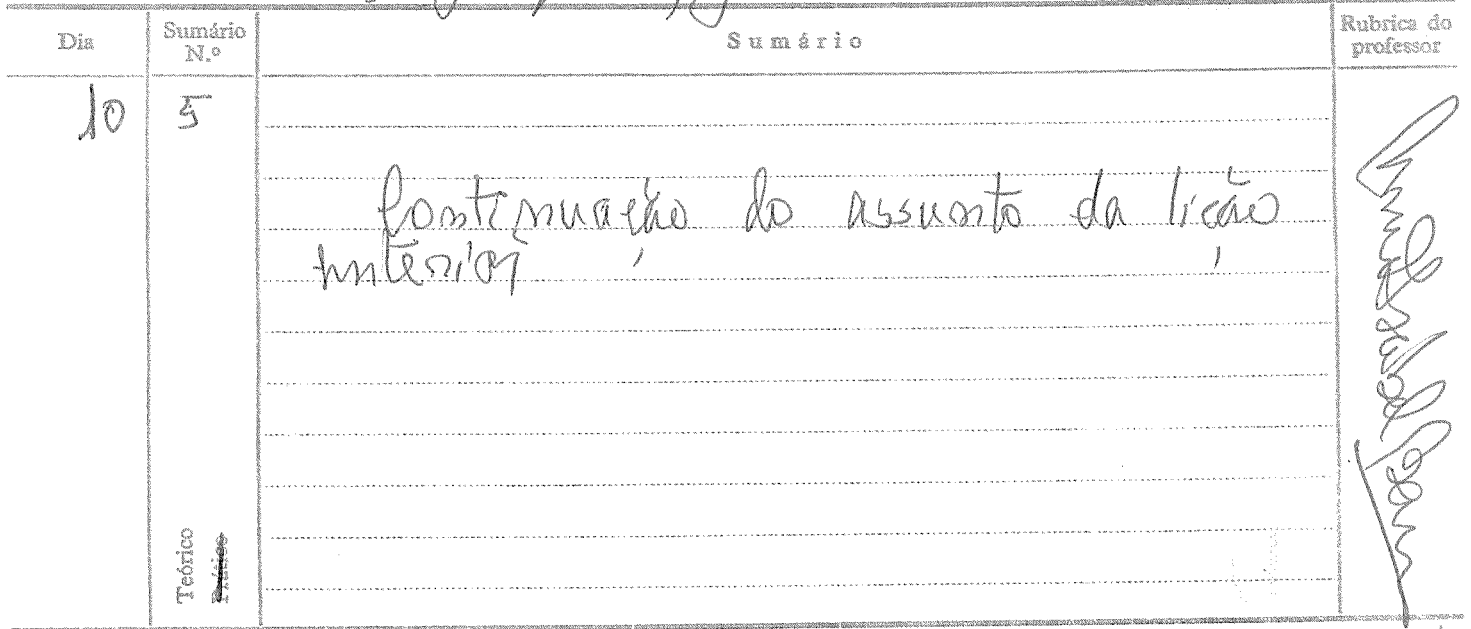 Dia
Sumário
N.º
Sumário
Rubrica do
professor
10
5
Continuação do assunto da lição
anterior
Teórico
Prático